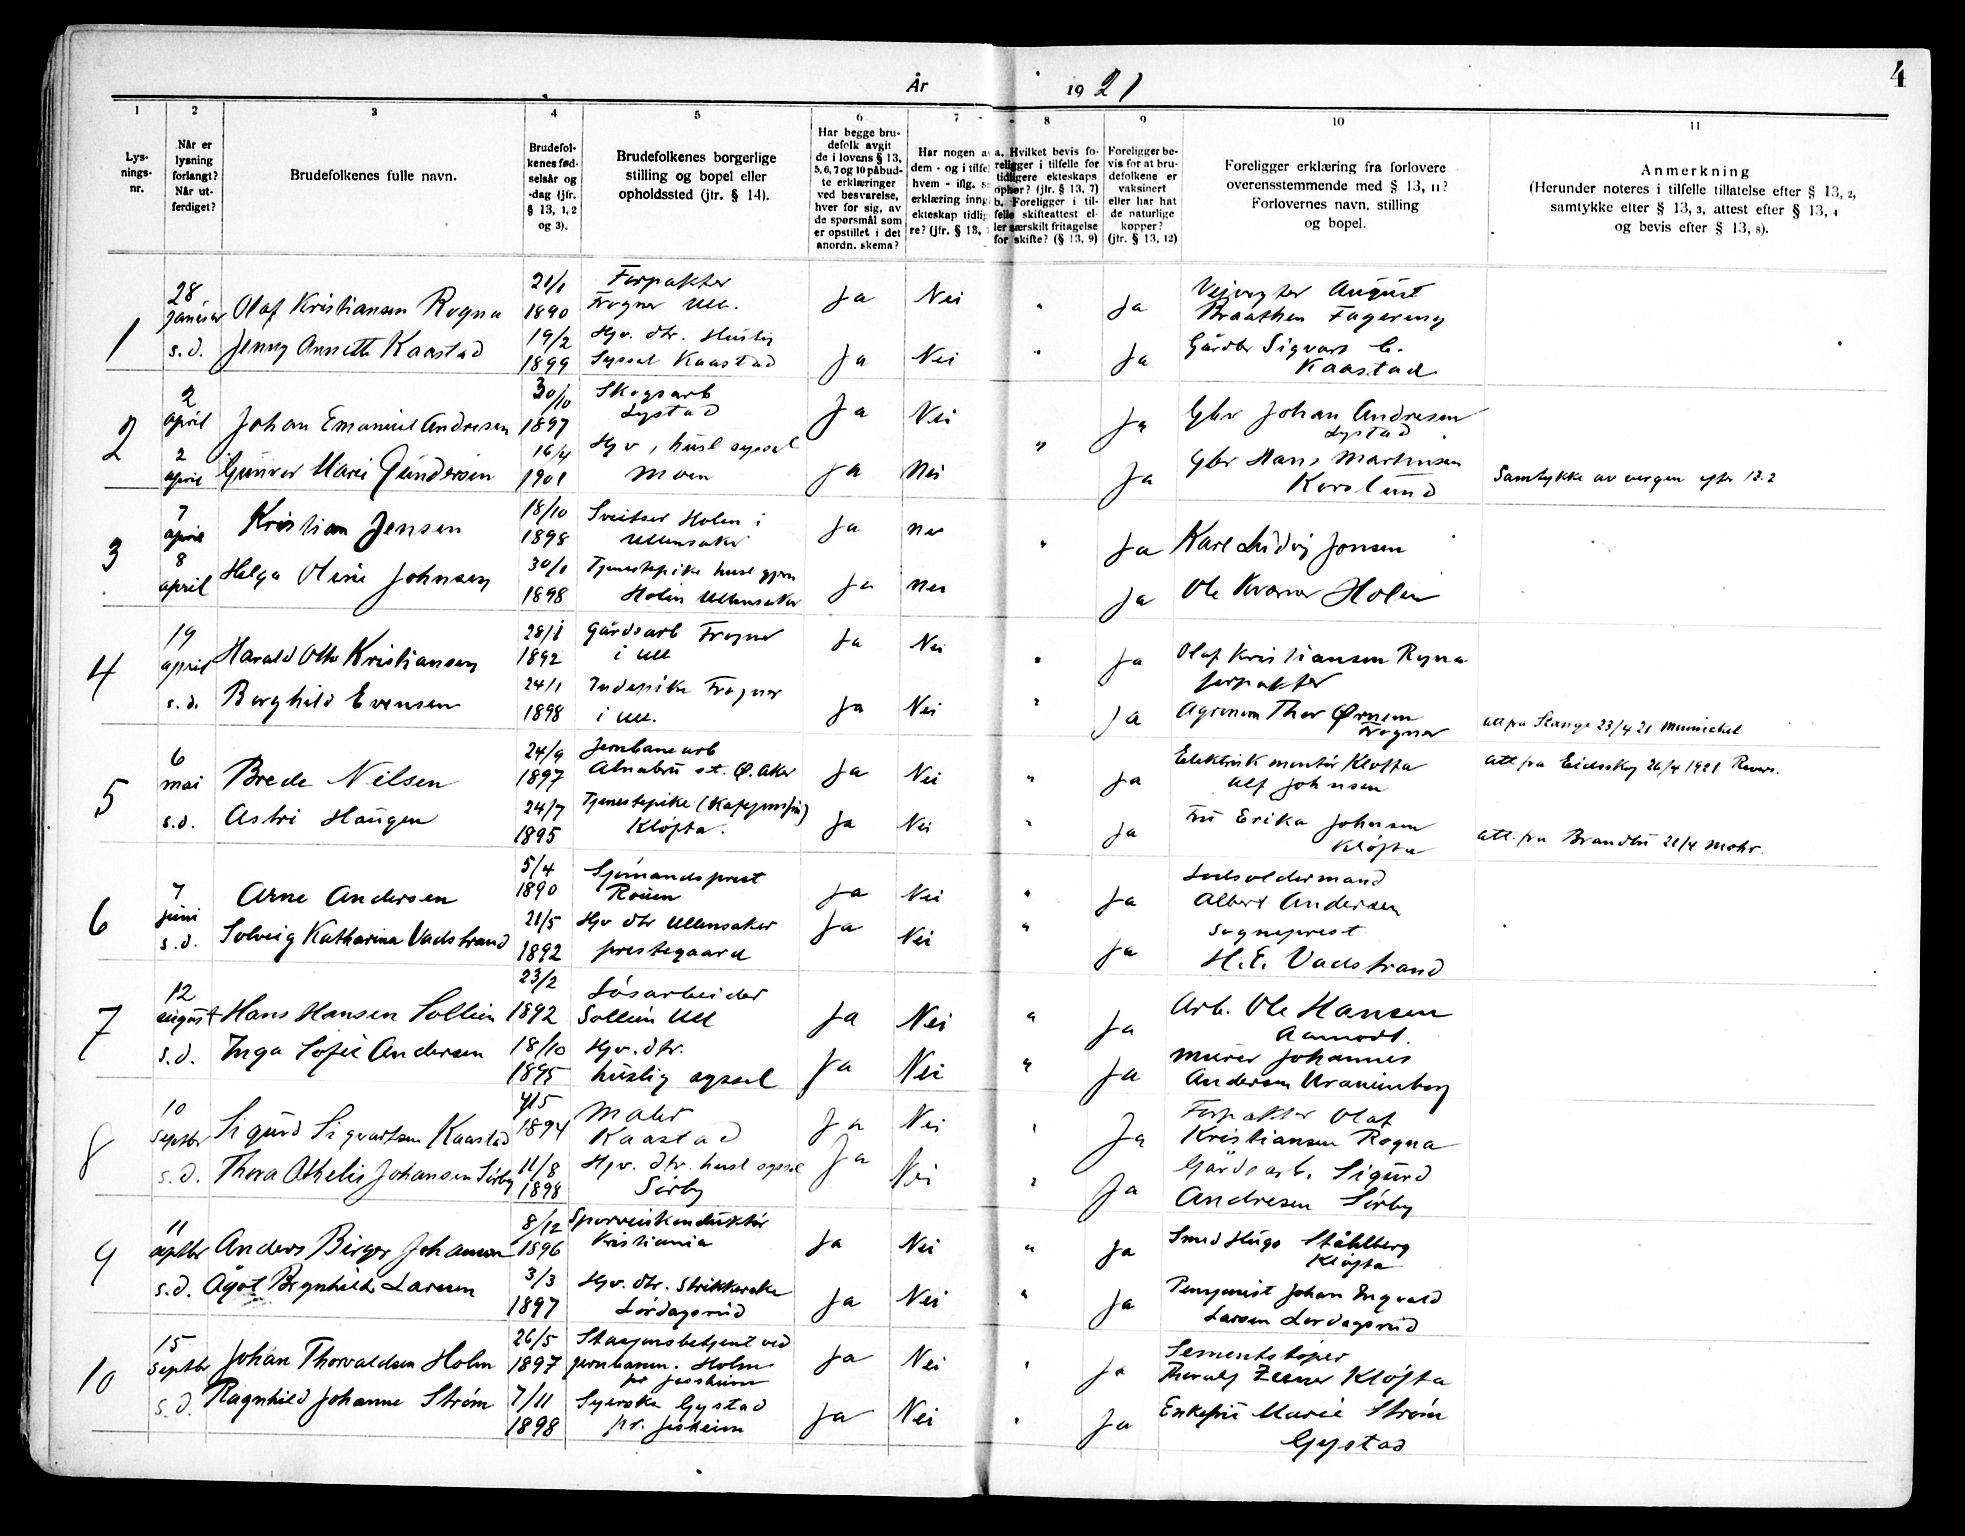 4
År 1921
1 2 3 4 5 6 7 8 9 10 11
Lys-
nings-
nr.
Når er
lysning
forlangt?
Når ut-
ferdiget?
Brudefolkenes fulle navn.
Brudefol-
kenes fød-
selsår og
-dag (jfr.
§ 13, 1, 2
og 3).
Brudefolkenes borgerlige
stilling og bopel eller
opholdssted (jfr. § 14).
Har begge bru-
defolk avgit
de i lovens § 13,
5, 6, 7 og 10 påbud-
te erklæringer
ved besvarelse,
hver for sig, av
de spørsmål som
er opstillet i det
anordn. skema?
Har nogen a
dem - og i tilfel
hvem - iflg. s
erklæring inng
ekteskap tidlig
re? (jfr. § 13,
a. Hvilket bevis fo-
religger i tilfelle for
tidligere ekteskaps
ophør? (jfr. § 13, 7)
b. Foreligger i til-
felle skifteattest el-
ler særskilt fritagelse
for skifte? (§ 13, 9)
Foreligger be-
vis for at bru-
defolkene er
vaksinert
eller har hat
de naturlige
kopper?
(jfr. § 13, 12)
Foreligger erklæring fra forlovere
overensstemmende med § 13, 11?
Forlovernes navn, stilling
og bopel.
Anmerkning
(Herunder noteres i tilfelle tillatelse efter § 13, 2,
samtykke efter § 13, 3, attest efter § 13, 4
og bevis efter § 13, 8).
1
28
januar Olaf Kristiansen Rogna 21/1 1890 Forpakter
Frogner Ull. Ja Nei " Ja Veivogter August
Braathen Fagereng
s.d. Jenny Annette Kaastad 19/2 1899 Hjv. dtr. Huslig
Syssel Kaastad Ja Nei " Ja Gårdbr Sigvart C.
Kaastad
2
2
april Johan Emanuel Andresen 30/10 1897 Skogsarb
Lystad Ja Nei " Ja Gbr Johan Andresen
Lystad
2
april Gunvor Marie Gundersen 16/4 1901 Hjv, husl syssel
Moen Ja Nei Ja Gbr Hans Martinsen
Samtykke av vergen efter 13.2
3
7
april Kristian Jensen 18/10 1898 Sveitser Holen i
Ullensaker Ja Nei " Ja Karl Ludvig Jonsen
8
april Helga Oline Johnsen 30/1 1898 Tjenestepike husl gjern
Holen Ullensaker Ja Nei Ja Ole Holen
4
19
april Harald Otto Kristiansen 28/1 1892 Gårdsarb Frogner
i Ull Ja Nei " Ja Olaf Kristiansen Rogna
forpakter
s.d. Borghild Evensen 24/1 1898 Indepike Frogner
i Ull. Ja Nei " Ja Agronom Thor Ørnem
Frogner
att fra Stange 23/4 21
5
6
mai Brede Nilsen 24/9 1897 Jernbanearb
Alnabru st. Ø. Aker Ja Nei " Ja Elektrisk montør Kløfta
Alf Johnsen
att fra Eidsskog 26/4 1921
s.d. Astri Haugen 24/7 1895 Tjenestepike
Kløfta. Ja Nei " Ja Fru Erika Johnsen
Kløfta
att. fra Brandbu 21/4 Mohr.
6
7
juni Arne Andersen 5/4 1890 Sjømandsprest
Rouen Ja Nei " Ja Lodsoldermand
Albert Andersen
s.d. Solveig Katharina Vadstrand 21/5 1892 Hjv dtr Ullensaker
prestegaard Ja Nei " Ja Sogneprest
H.E. Vadstrand
7
12
august Hans Hansen Sollien 23/2 1892 Løsarbeider
Sollien Ull Ja Nei " Ja Arb. Ole Hansen
Aamodt.
s.d. Inga Sofie Andersen 18/10 1895 Hjv. dtr.
huslig syssel Ja Nei " Ja Murer Johannes
Andersen Uranienborg
8
10
Septbr Sigurd Sigvartsen Kaastad 4/5 1894 Maler
Kaastad Ja Nei " Ja Forpakter Olaf
Kristiansen Rogna
s.d. Thora Athelie Johansen Sørby 11/8 1898 Hjv. dtr. husl syssel
Sørby Ja Nei " Ja Gårdsarb. Sigurd
Andresen Sørby
9
11
septbr Anders Birger Johansen 8/12 1896 Sporveiskonduktør
Kristiania Ja Nei " Ja Smed Hugo Ståhlberg
Kløfta
s.d. Ågot Bergnhilda Larsen 3/3 1897 Hjv. dtr. Strikkerske
Lørdagsrud Ja Nei " Ja Pensjonist Johan Ingvald
Larsen Lørdagsrud
10
15
Septbr Johan Thorvaldsen Holm 26/5 1897 Stasjonsbetjent ved
jernbanen. Holm
pr Jessheim Ja Nei " Ja Sementstøper
Thoralf Zeiner Kløfta
s.d. Ragnhild Johanne Strøm 7/11 1898 Syerske Gystad
pr. Jesheim Ja Nei " Ja Enkefru Marie Strøm
Gystad